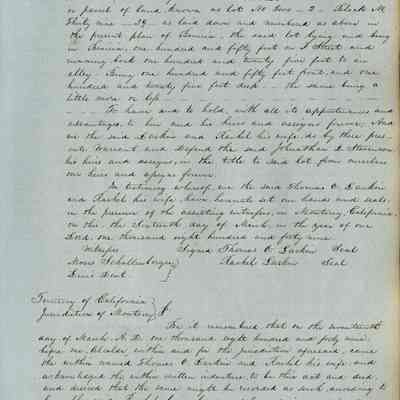 or parcel of land, known as lot No Two - 2 - Block No
Thirty nine - 39 - as laid down and numbered as above in
the present plan of Benicia. the said lot lying and being
in Benicia, one hundred and fifty feet on I Street and
running back one hundred and twenty five feet to an
alley. Being one hundred and fifty feet front, and one
hundred and twenty five feet deep - the same being a
little more or less
To have and to hold, with all its appurtenances and
advantages, to him and his heirs and assigns forever. And
we the said Larkin and Rachel his wife, do by these pres-
ents, Warrant and defend the said Johnathan D. Stevenson
his heirs and assigns, in the title to said lot, from ourselves
our heirs and assigns forever.
In testimony whereof, we the said Thomas O. Larkin
and Rachel his wife, have hereunto set our hands and seals,
in the presence of the assisting witnesses, in Monterey, California,
on this the Sixteenth day of March, in the year of our
Lord, one thousand eight hundred and forty nine
Witnesses Signed Thomas O. Larkin Seal
Moses Schallenberger Rachel Larkin Seal
Dent
Territory of California
Jurisdiction of Monterey
Be it remembered that on the seventeenth
day of March A. D. one thousand eight hundred and forty nine
before me, Alcalde within and for the jurisdiction aforesaid, came
the within named Thomas O. Larkin and Rachel his wife, and
acknowledged the within written indenture, to be their act and deed
and desired that the same might be recorded as such, according to